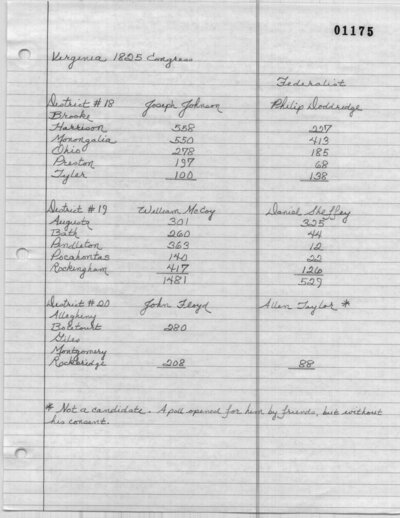 01175
Virginia 1825 Congress
Federalist
District #18 Joseph Johnson Philip Doddridge
Brooke
Harrison 558 227
Monongalia 550 413
Ohio 278 185
Preston 197 68
Tyler 100 138
District #19 William McCoy Daniel Sheffey
Augusta 301 325
Bath 260 44
Pendleton 363 12
Pocahontas 140 22
Rockingham 417 126
1481 529
District #20 John Floyd Allen Taylor *
Allegheny
Botetourt 280
Giles
Montgomery
Rockbridge 208 88
* Not a candidate. A poll opened for him by friends, but without
his consent.